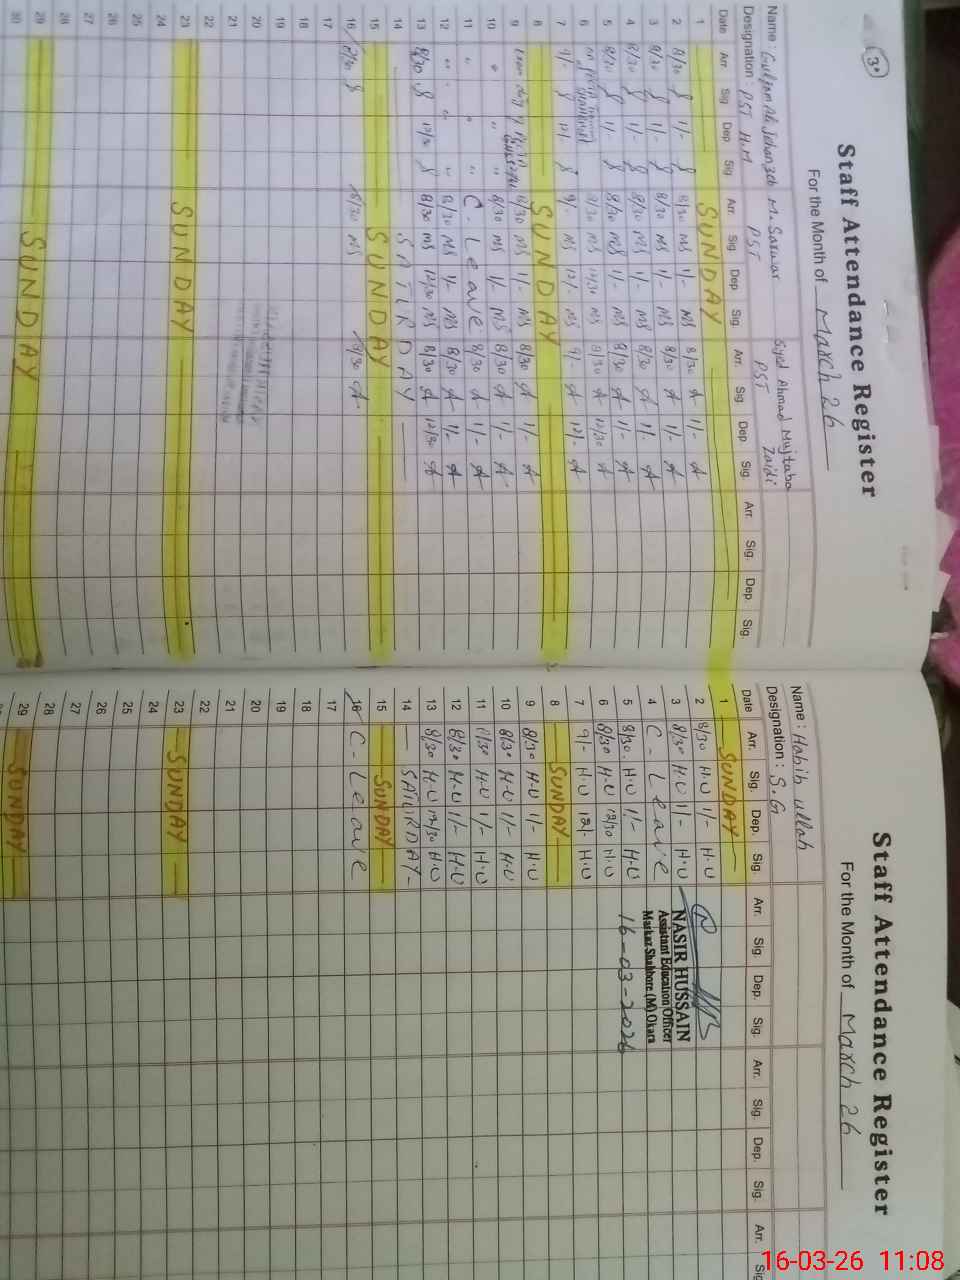 3.
Staff Attendance Register
For the Month of March 26
Name : Gulzam Ali Jehanzeb M. Sarwar Syed Ahmad Mujtaba Zaidi
Designation : PST H.M PST PST
Date Arr. Sig. Dep. Sig. Arr. Sig. Dep. Sig. Arr. Sig. Dep. Sig. Arr. Sig. Dep. Sig.
1 SUNDAY
2 8/30 1/- 8/30 MS 1/- MS 8/30 A 1/- A
3 8/30 1/- 8/30 MS 1/- MS 8/30 A 1/- A
4 8/30 1/- 8/30 MS 1/- MS 8/30 A 1/- A
5 8/30 1/- 8/30 MS 1/- MS 8/30 A 1/- A
6 8/30 MS 12/30 MS 8/30 A 12/30 A
7 9/- 12/- 9/- MS 12/- MS 9/- A 12/- A
8 SUNDAY
9 8/30 MS 1/- MS 8/30 A 1/- A
10 " " " 8/30 MS 1/- MS 8/30 A 1/- A
11 " " " C - Leave 8/30 A 1/- A
12 " " " " 8/30 MS 1/- MS 8/30 A 1/- A
13 8/30 12/30 8/30 MS 12/30 MS 8/30 A 12/30 A
14 SATURDAY
15 SUNDAY
16 8/30 8/30 MS 8/30 A
17
18
19
20
21
22
23 SUNDAY
24
25
26
27
28
29 SUNDAY
30
Staff Attendance Register
For the Month of March 26
Name : Habib Ullah
Designation : S.G
Date Arr. Sig. Dep. Sig. Arr. Sig. Dep. Sig. Arr. Sig. Dep. Sig. Arr. Sig
1 SUNDAY
2 8/30 H.U 1/- H.U
3 8/30 H.U 1/- H.U
4 C - Leave
5 8/30 H.U 1/- H.U
6 8/30 H.U 12/30 H.U
7 9/- H.U 12/- H.U
8 SUNDAY
9 8/30 H.U 1/- H.U
10 8/30 H.U 1/- H.U
11 8/30 H.U 1/- H.U
12 8/30 H.U 1/- H.U
13 8/30 H.U 12/30 H.U
14 SATURDAY
15 SUNDAY
16 C - Leave
17
18
19
20
21
22
23 SUNDAY
24
25
26
27
28
29 SUNDAY
NASIR HUSSAIN
Assistant Education Officer
Markaz Shahbore (M) Okara
16-03-2026
16-03-26 11:08